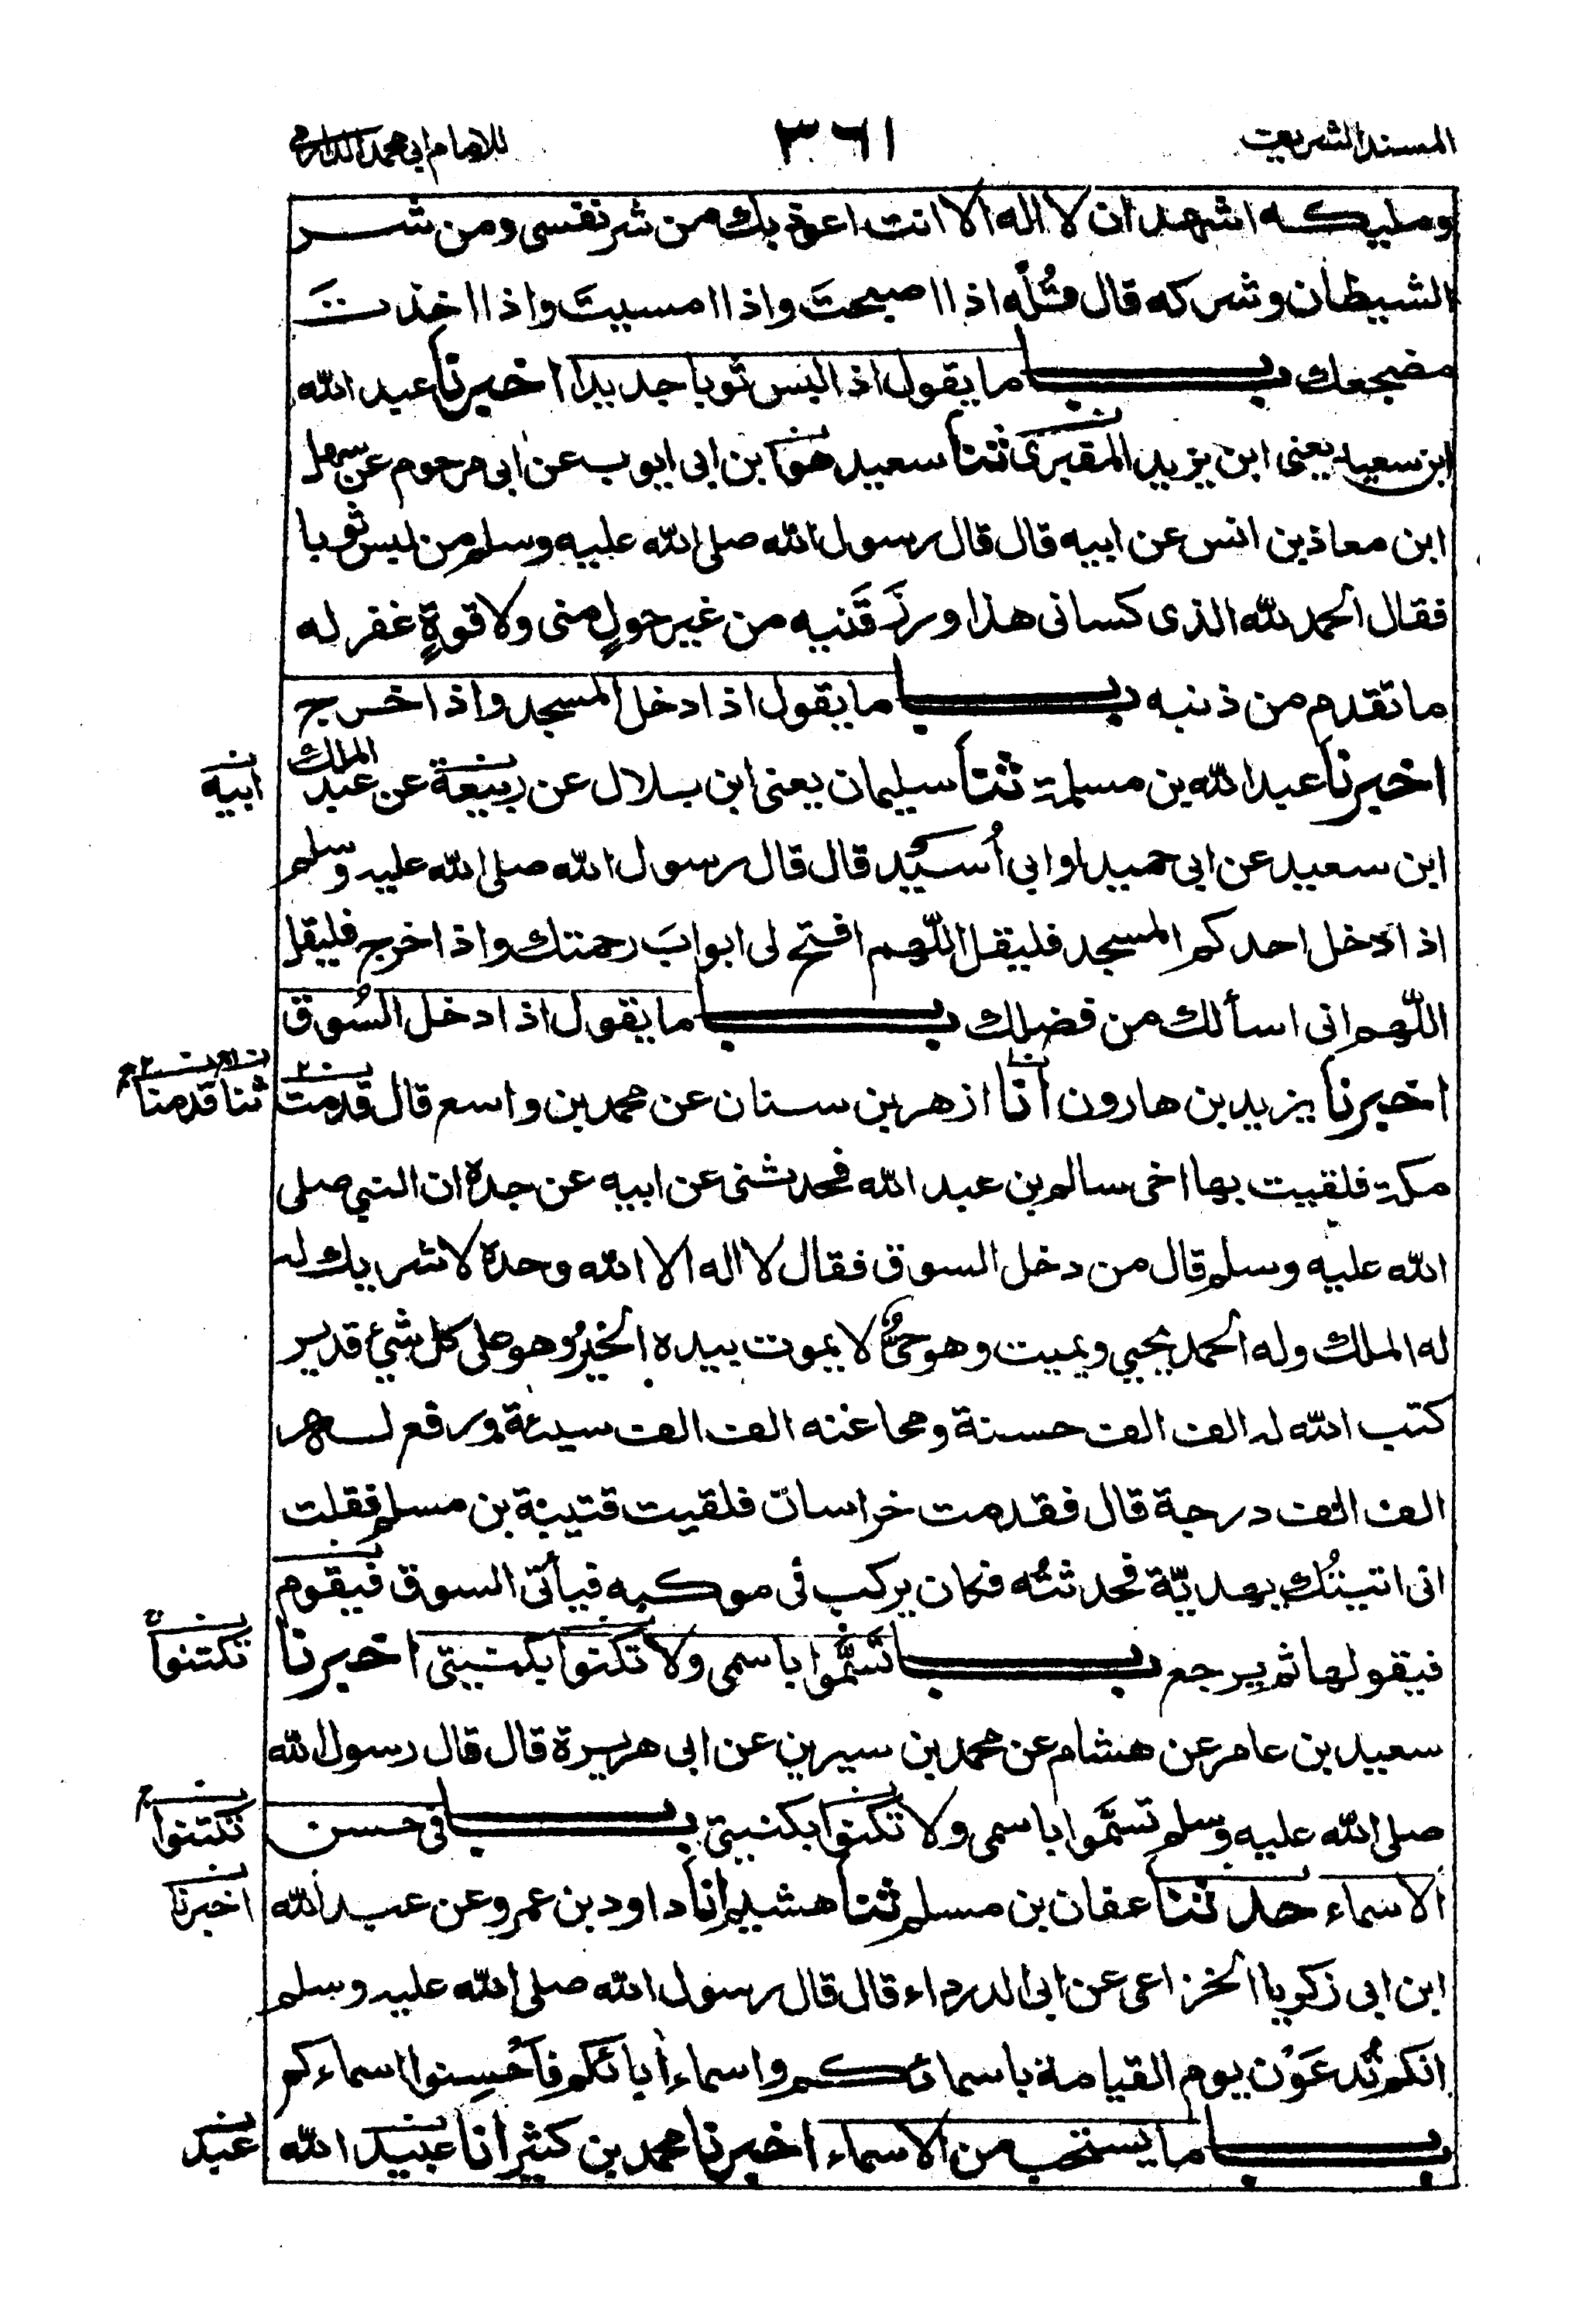 المسند الشريف
٣٦١
للامام ابی محمد الدارمی
ومليكه اشهد ان لا اله الا انت اعوذ بك من شر نفسی ومن شر
الشيطان وشركه قال قُلْه اذا اصبحتَ واذا امسيتَ واذا اخذتَ
مضجعك باب ما يقول اذا لبس ثوبا جديدا اخبرنا عبد الله
ابن سعيد يعنی ابن يزيد المقبری ثنا سعيد هو ابن ابی ايوب عن ابی مرحوم عن سهل
ابن معاذ بن انس عن ابيه قال قال رسول الله صلی الله عليه وسلم من لبس ثوبا
فقال الحمد لله الذی كسانی هذا ورزَقَنيه من غير حولٍ منی ولا قوةٍ غفر له
ما تقدم من ذنبه باب ما يقول اذا دخل المسجد واذا خرج
اخبرنا عبد الله بن مسلمة ثنا سليمان يعنی ابن بلال عن ربيعة عن عبد الملك
ابيه
ابن سعيد عن ابی حميد او ابی اُسَيْد قال قال رسول الله صلی الله عليه وسلم
اذا دخل احدكم المسجد فليقل اللّهم افتح لی ابوابَ رحمتك واذا خرج فليقل
اللّهم انی اسألك من فضلك باب ما يقول اذا دخل السُوق
اخبرنا يزيد بن هارون انا ازهر بن سنان عن محمد بن واسع قال قدمت
ثنا قدمنا
مكة فلقيت بها اخی سالم بن عبد الله فحدثنی عن ابيه عن جده ان النبی صلی
الله عليه وسلم قال من دخل السوق فقال لا اله الا الله وحده لا شريك له
له الملك وله الحمد يحيی ويميت وهو حیٌّ لا يموت بيده الخيرُ وهو علی كل شیئ قدير
كتب الله له الف الف حسنة ومحا عنه الف الف سيئة ورفع له
الف الف درجة قال فقدمت خراسان فلقيت قتيبة بن مسلم فقلت
انی اتيتُك بهديّة فحدثتُه فكان يركب فی موكبه فيأتی السوق فيقوم
فيقولها ثم يرجع باب تَسَمَّوا باسمی ولا تكنوا بكنيتی اخبرنا
تكتنوا
سعيد بن عامر عن هشام عن محمد بن سيرين عن ابی هريرة قال قال رسول الله
صلی الله عليه وسلم تسمَّوا باسمی ولا تكنوا بكنيتی باب فی حسن
تكتنوا
الاسماء حدثنا عفان بن مسلم ثنا هشيم انا داود بن عمرو عن عبد الله
اخبرنا
ابن ابی زكريا الخزاعی عن ابی الدرداء قال قال رسول الله صلی الله عليه وسلم
انكم تُدعَوْن يوم القيامة باسمائكم واسماء أبائكم فاَحْسِنوا اسماءكم
باب ما يستحب من الاسماء اخبرنا محمد بن كثير انا عبيد الله
عبد